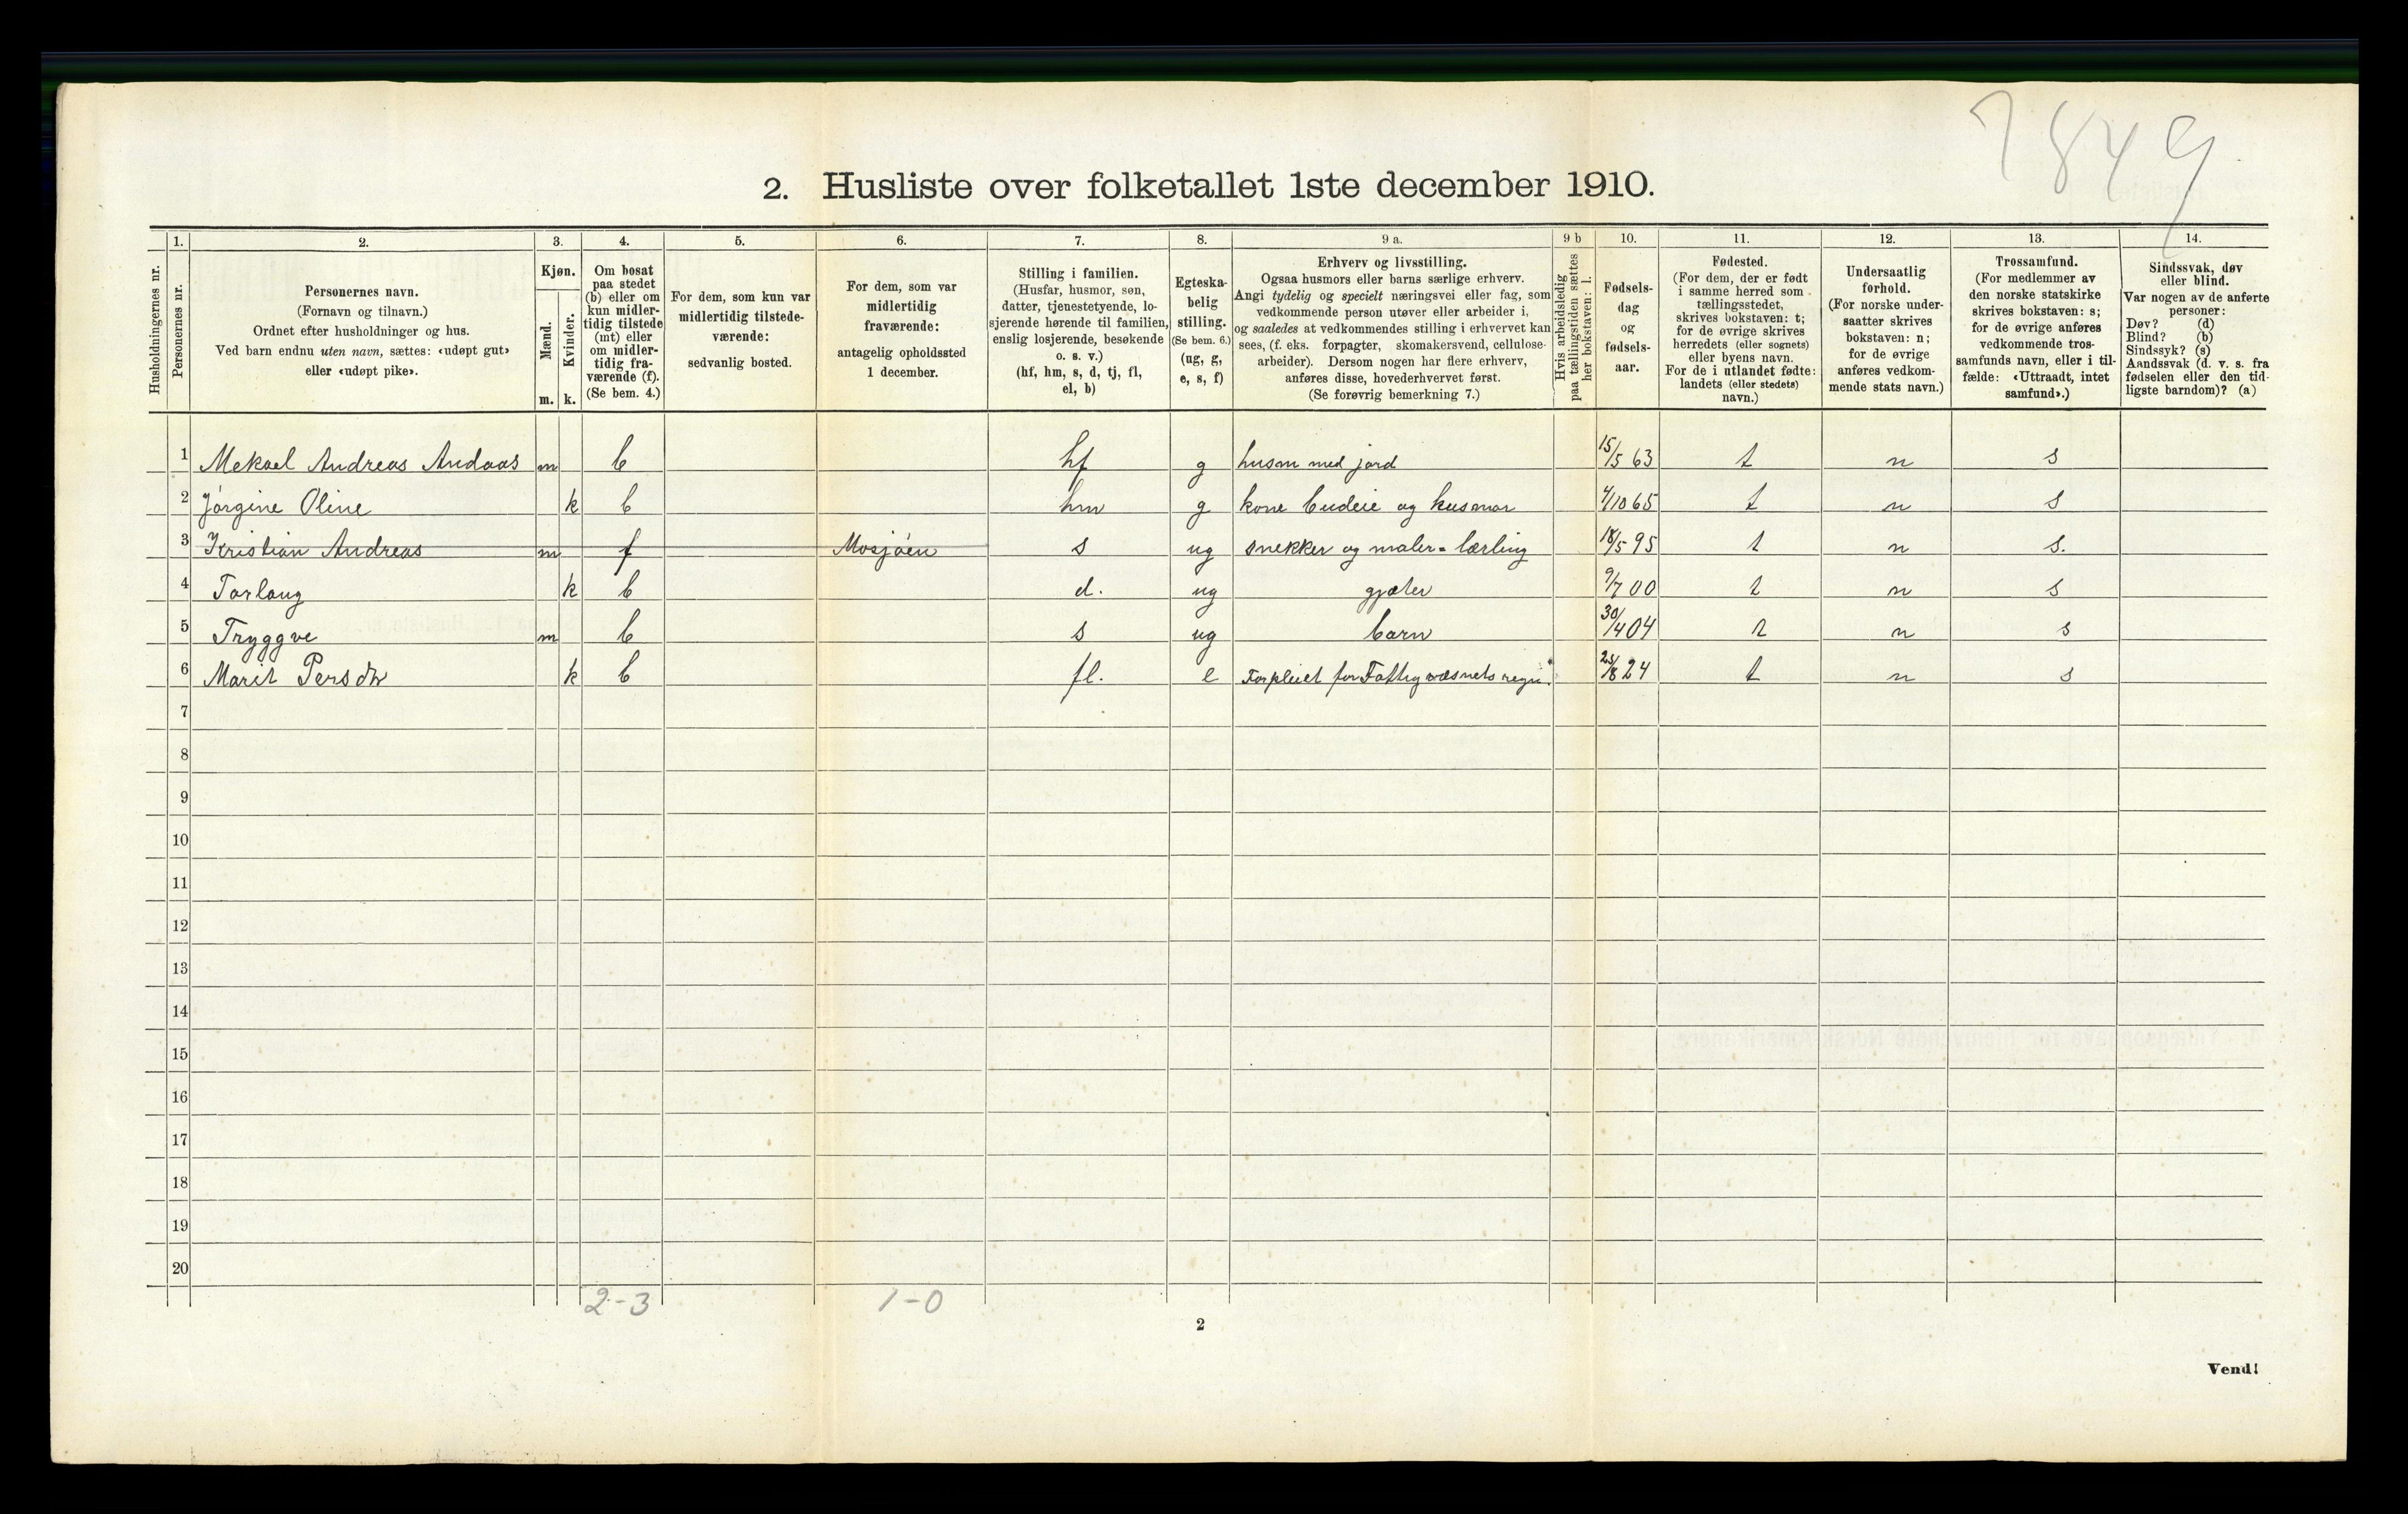 7849
2. Husliste over folketallet 1ste december 1910.
Husholdningernes nr.
1. Personernes nr.
2. Personernes navn.
(Fornavn og tilnavn.)
Ordnet efter husholdninger og hus.
Ved barn endnu uten navn, sættes: «udøpt gut»
eller «udøpt pike».
3. Kjøn.
Mænd. m.
Kvinder. k.
4. Om bosat
paa stedet
(b) eller om
kun midler-
tidig tilstede
(mt) eller
om midler-
tidig fra-
værende (f).
(Se bem. 4.)
5. For dem, som kun var
midlertidig tilstede-
værende:
sedvanlig bosted.
6. For dem, som var
midlertidig
fraværende:
antagelig opholdssted
1 december.
7. Stilling i familien.
(Husfar, husmor, søn,
datter, tjenestetyende, lo-
sjerende hørende til familien,
enslig losjerende, besøkende
o. s. v.)
(hf, hm, s, d, tj, fl,
el, b)
8. Egteska-
belig
stilling.
(Se bem. 6.)
(ug, g,
e, s, f)
9 a. Erhverv og livsstilling.
Ogsaa husmors eller barns særlige erhverv.
Angi tydelig og specielt næringsvei eller fag, som
vedkommende person utøver eller arbeider i,
og saaledes at vedkommendes stilling i erhvervet kan
sees, (f. eks. forpagter, skomakersvend, cellulose-
arbeider). Dersom nogen har flere erhverv,
anføres disse, hovederhvervet først.
(Se forøvrig bemerkning 7.)
9 b Hvis arbeidsledig
paa tællingstiden sættes
her bokstaven: l.
10. Fødsels-
dag
og
fødsels-
aar.
11. Fødested.
(For dem, der er født
i samme herred som
tællingsstedet,
skrives bokstaven: t;
for de øvrige skrives
herredets (eller sognets)
eller byens navn.
For de i utlandet fødte:
landets (eller stedets)
navn.)
12. Undersaatlig
forhold.
(For norske under-
saatter skrives
bokstaven: n;
for de øvrige
anføres vedkom-
mende stats navn.)
13. Trossamfund.
(For medlemmer av
den norske statskirke
skrives bokstaven: s;
for de øvrige anføres
vedkommende tros-
samfunds navn, eller i til-
fælde: «Uttraadt, intet
samfund».)
14. Sindssvak, døv
eller blind.
Var nogen av de anførte
personer:
Døv? (d)
Blind? (b)
Sindssyk? (s)
Aandssvak (d. v. s. fra
fødselen eller den tid-
ligste barndom)? (a)
1 Mekael Andreas Andaas m b hf g husm med jord 15/5 63 t n s
2 Jørgine Oline k b hm g kone budeie og husmor 4/10 65 t n s
3 Kristian Andreas m f Mosjøen s ug snekker og maler=lærling 18/5 95 t n s.
4 Torlaug k b d. ug gjæter 9/7 00 t n s
5 Tryggve m b s ug barn 30/4 04 t n s
6 Marit Persdtr k b fl. e Forpleiet for Fattigvæsnets regn. 23/8 24 t n s
7
8
9
10
11
12
13
14
15
16
17
18
19
20
2-3 1-0
2
Vend!